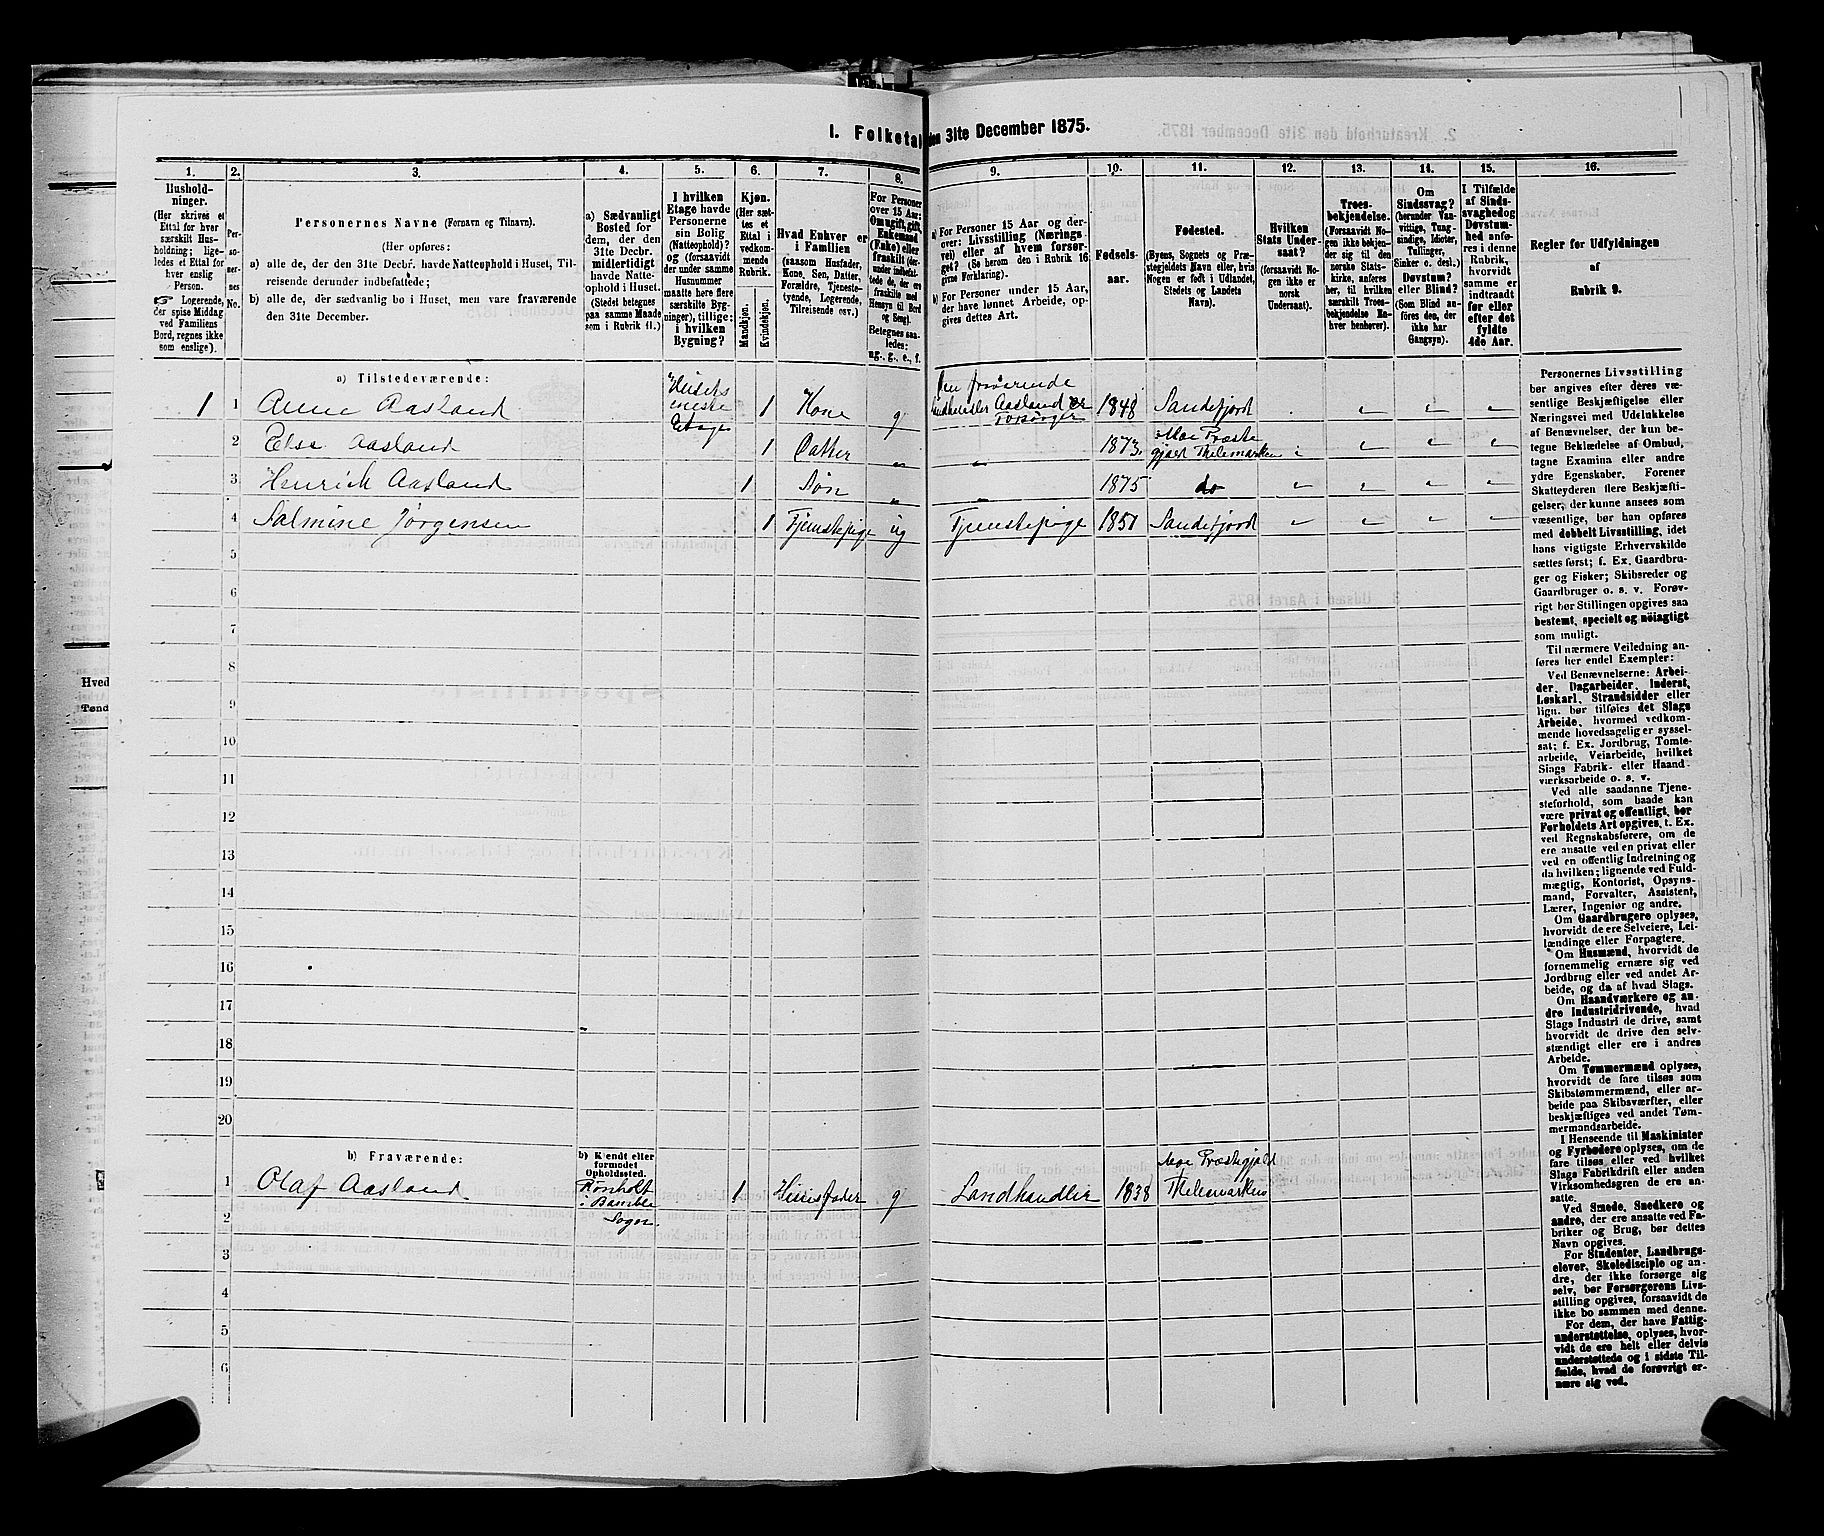 1. Folketal den 31te December 1875.
1. 2. 3. 4. 5. 6. 7. 8. 9. 10. 11. 12. 13. 14. 15. 16.
Hushold-
ninger.
(Her skrives et
Ettal for hver
særskilt Hus-
holdning; lige-
ledes et Ettal for
hver enslig
Person.
☞ Logerende,
der spise Middag
ved Familiens
Bord, regnes ikke
som enslige).
Per-
so-
ner-
nes
No.
Personernes Navne (Fornavn og Tilnavn).
(Her opføres:
a) alle de, der den 31te Decbr. havde Natteophold i Huset, Til-
reisende derunder indbefattede;
b) alle de, der sædvanlig bo i Huset, men vare fraværende
den 31te December.
a) Sædvanligt
Bosted for
dem, der den
31te Decbr.
midlertidigt
havde Natte-
ophold i Huset.
(Stedet betegnes
paa samme Maade
som i Rubrik 11.)
I hvilken
Etage havde
Personerne
sin Bolig
(Natteophold)?
og (forsaavidt
der under samme
Husnummer
maatte høre flere
særskilte Byg-
ninger), tillige:
i hvilken
Bygning?
Kjøn.
(Her sæt-
tes et
Ettal i
vedkom-
mende
Rubrik.
Mandkjøn.
Kvindekjøn.
Hvad Enhver er
i Familien
(saasom Husfader,
Kone, Søn, Datter,
Forældre, Tjeneste-
tyende, Logerende,
Tilreisende osv.)
For Personer
over 15 Aar:
Om ugift, gift,
Enkemand
(Enke) eller
fraskilt
Betegnes saa-
ledes:
ug., g., e., f.
a) For Personer 15 Aar og der-
over: Livsstilling (Nærings-
vei) eller af hvem forsør-
get? (Se herom den i Rubrik 16
givne Forklaring).
b) For Personer under 15 Aar,
der have lønnet Arbeide, op-
gives dettes Art.
Fødsels-
aar.
Fødested.
(Byens, Sognets og Præ-
stegjeldets Navn eller, hvis
Nogen er født i Udlandet,
Stedets og Landets
Navn).
Hvilken
Stats Under-
saat?
(forsaavidt No-
gen ikke er
norsk
Undersaat).
Troes-
bekjendelse.
(Forsaavidt No-
gen ikke bekjen-
der sig til den
norske Stats-
kirke, anføres
her, til hvilken
særskilt Troes-
bekjendelse En-
hver henhører).
Om
Sindssvag?
(herunder Van-
vittige, Tung-
sindige, Idioter,
Tullinger,
Sinker o. desl.)
Døvstum?
eller Blind?
(Som Blind an-
føres den, der
ikke har
Gangsyn).
I Tilfælde
af Sinds-
svaghed og
Døvstum-
hed anfø-
res i denne
Rubrik,
hvorvidt
samme er
indtraadt
før eller
efter det
fyldte
4de Aar.
Regler for Udfyldningen
af
Rubrik 9.
a) Tilstedeværende:
1 1 Anne Aasland Husets eneste Etage 1 Kone g Den fraværende Landhandler Aasland er Forsørger 1848 Sandefjord
2 Else Aasland 1 Datter " " 1873. Moe Præste gjæld Thelemarken
3 Henrich Aasland 1 Søn " " 1875 do
4 Salmine Jørgensen 1 Tjenstepige ug Tjenstepige 1851 Sandefjord
5
6
7
8
9
10
11
12
13
14
15
16
17
18
19
20
b) Fraværende:
b) Kjendt eller
formodet
Opholdssted.
1 Olaf Aasland i Bamble Sogn. 1 Huusfader g Landhandler 1838 Moe Præstegjæld Thelemarken
2
3
4
5
6
Personernes Livsstilling
bør angives efter deres væ-
sentlige Beskjæftigelse eller
Næringsvei med Udelukkelse
af Benævnelser, der kun be-
tegne Beklædelse af Ombud,
tagne Examina eller andre
ydre Egenskaber. Forener
Skatteyderen flere Beskjæfti-
gelser, der kunne ansees som
væsentlige, bør han opføres
med dobbelt Livsstilling, idet
hans vigtigste Erhvervskilde
sættes først; f. Ex. Gaardbru-
ger og Fisker; Skibsreder og
Gaardbruger o. s. v. Forøv-
rigt bør Stillingen opgives saa
bestemt, specielt og nöiagtigt
som muligt.
Til nærmere Veiledning an-
føres her endel Exempler:
Ved Benævnelserne: Arbei-
der, Dagarbeider, Inderst,
Løskarl, Strandsidder eller
lign. bør tilføies det Slags
Arbeide, hvormed vedkom-
mende hovedsagelig er syssel-
sat; f. Ex. Jordbrug, Tomte-
arbeide, Veiarbeide, hvilket
Slags Fabrik- eller Haand-
værksarbeide o. s. v.
Ved alle saadanne Tjene-
steforhold, som baade kan
være privat og offentligt, bør
Forholdets Art opgives, t. Ex.
ved Regnskabsførere, om de
ere ansatte ved en privat eller
ved en offentlig Indretning og
da hvilken; lignende ved Fuld-
mægtig, Kontorist, Opsyns-
mand, Forvalter, Assistent,
Lærer, Ingeniør og andre.
Om Gaardbrugere oplyses,
hvorvidt de ere Selveiere, Lei-
lændinge eller Forpagtere.
Om Husmænd, hvorvidt de
fornemmelig ernære sig ved
Jordbrug eller ved andet Ar-
beide, og da af hvad Slags.
Om Haandværkere og an-
dre Industridrivende, hvad
Slags Industri de drive, samt
hvorvidt de drive den selv-
stændigt eller ere i andres
Arbeide.
Om Tømmermænd oplyses,
hvorvidt de fare tilsøs som
Skibstømmermænd, eller ar-
beide paa Skibsværfter, eller
beskjæftiges ved andet Tøm-
mermandsarbeide.
I Henseende til Maskinister
og Fyrbødere oplyses, om de
fare tilsøs eller ved hvilket
Slags Fabrikdrift eller anden
Virksomhedsgren de ere an-
satte.
Ved Smede, Snedkere og
andre, der ere ansatte ved Fa-
briker og Brug, bør dettes
Navn opgives.
For Studenter, Landbrugs-
elever, Skoledisciple og an-
dre, der ikke forsørge sig
selv, bør Forsørgerens Livs-
stilling opgives, forsaavidt de
ikke bo sammen med denne.
For dem, der have Fattig-
understøttelse, oplyses, hvor-
vidt de ere helt eller delvis
understøttede og i sidste Til-
fælde, hvad de forøvrigt er-
nære sig ved.
Hved
Tønd